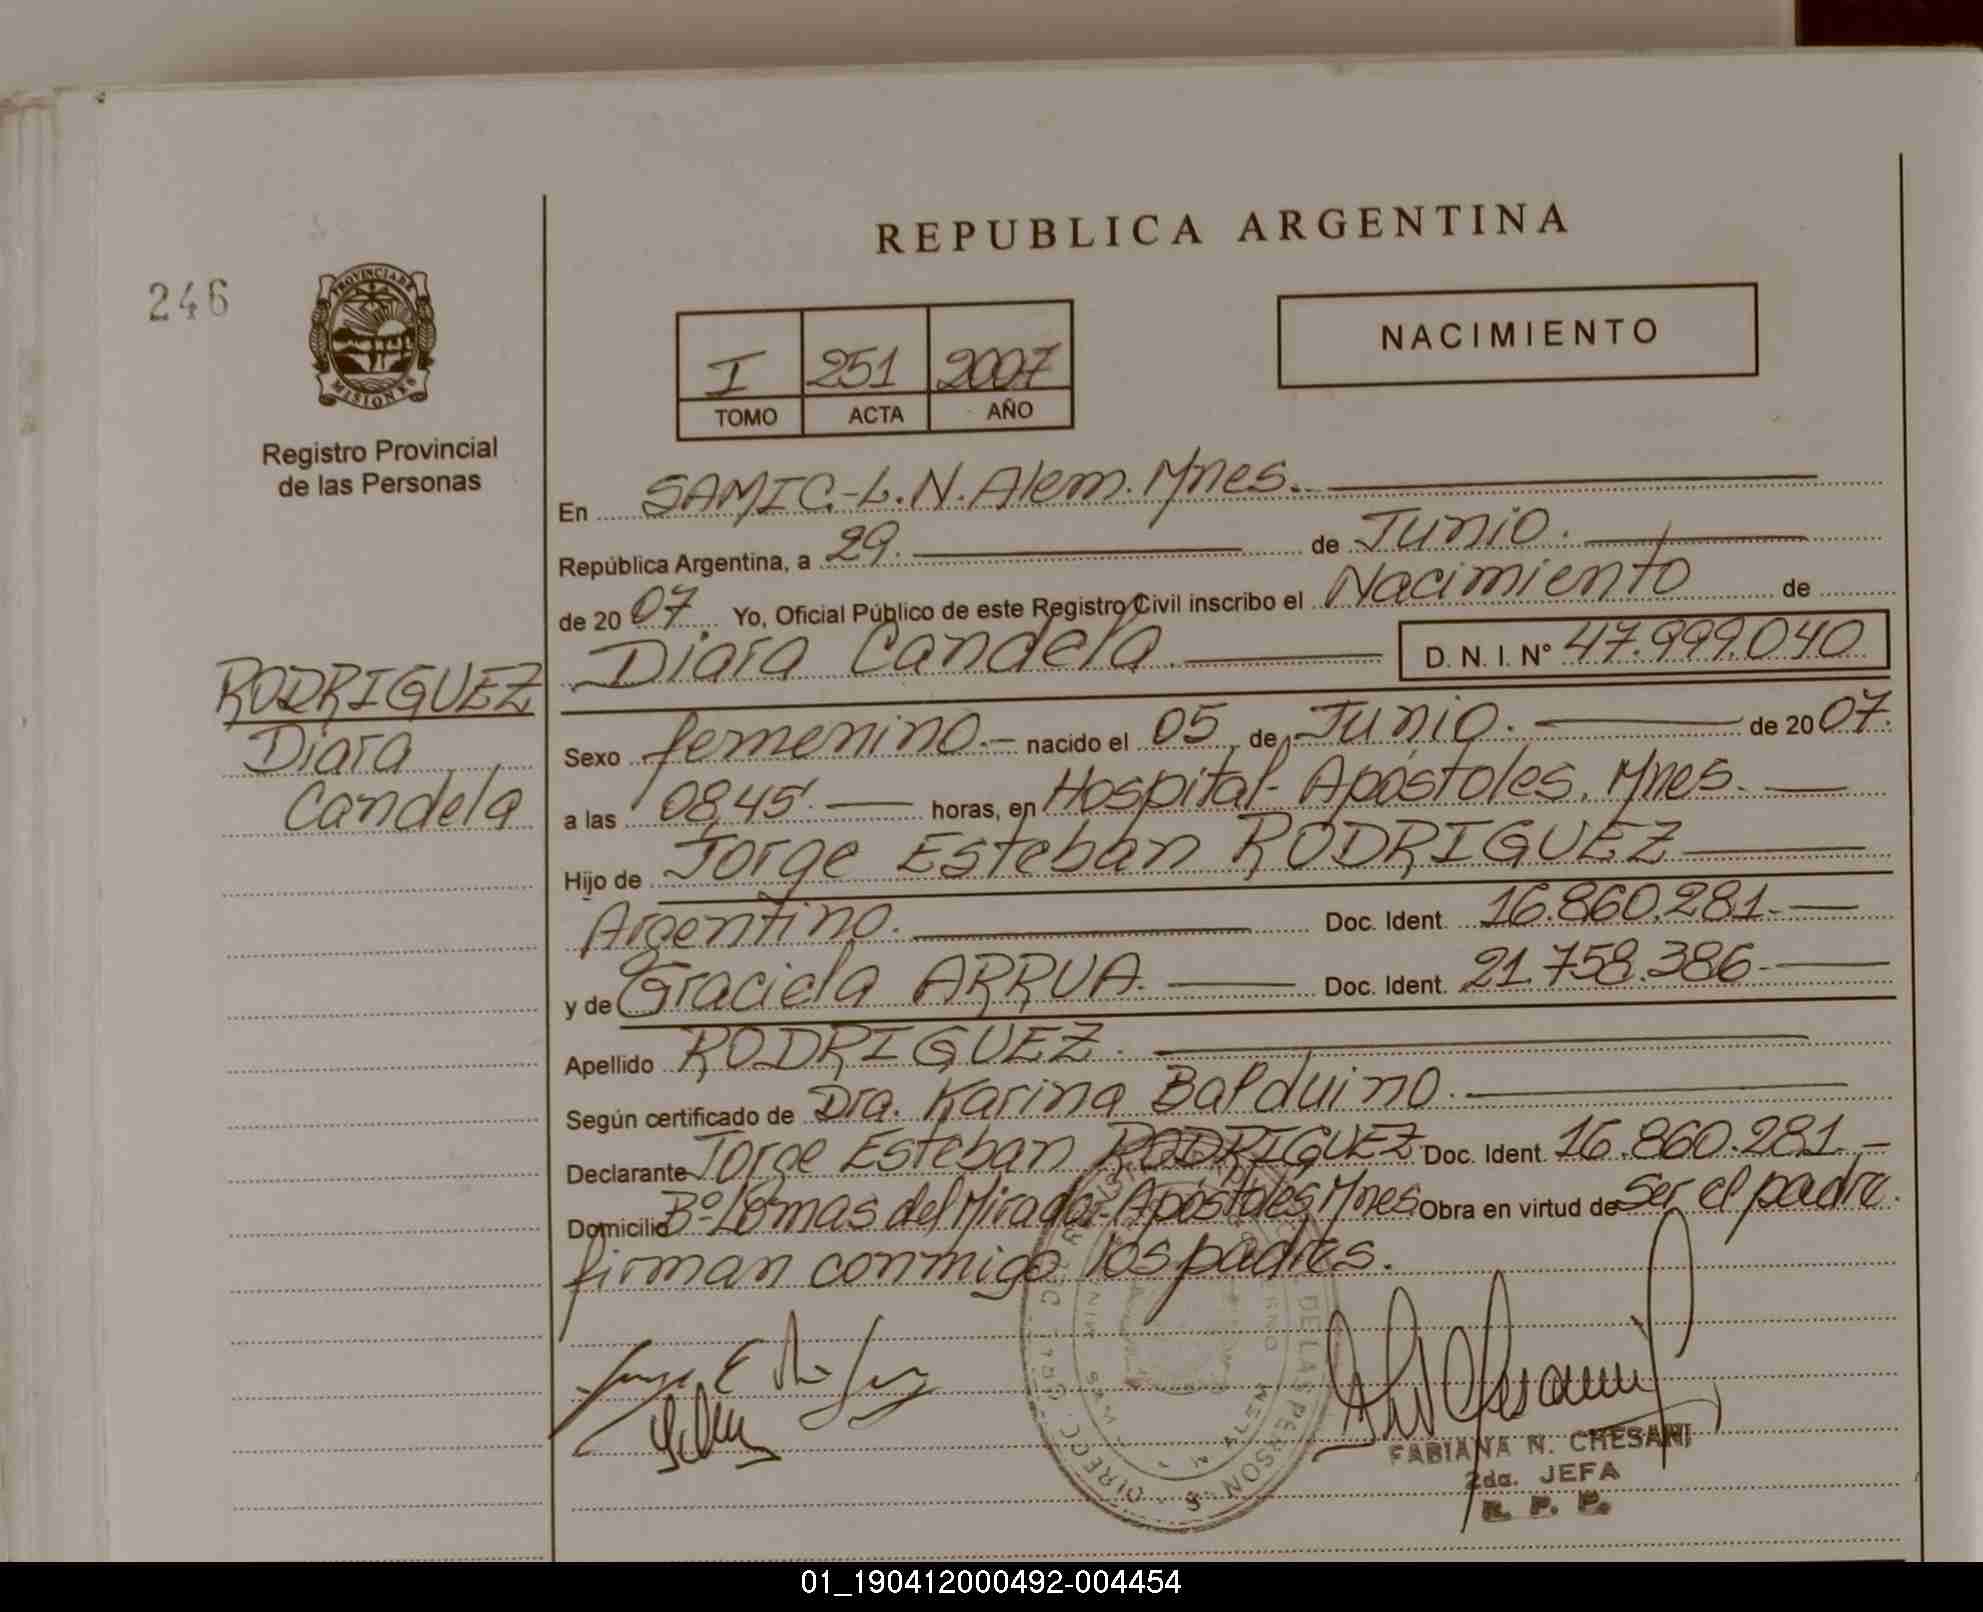 REPUBLICA ARGENTINA
246
PROVINCIA DE
MISIONES
Registro Provincial
de las Personas
I 251 2007
TOMO ACTA AÑO
NACIMIENTO
En SAMIC.-L.N.Alem. Mnes.
República Argentina, a 29. de Junio.
de 2007. Yo, Oficial Público de este Registro Civil inscribo el Nacimiento de
Diara Candela. D. N. I. Nº 47.999.040
RODRIGUEZ
Diara
Candela
Sexo femenino.- nacido el 05 de Junio. de 2007.
a las 08,45'. horas, en Hospital- Apóstoles, Mnes.
Hijo de Jorge Esteban RODRIGUEZ
Argentino. Doc. Ident. 16.860.281.
y de Graciela ARRUA. Doc. Ident. 21.758.386.
Apellido RODRIGUEZ.
Según certificado de Dra. Karina Balduino.
Declarante Jorge Esteban RODRIGUEZ Doc. Ident. 16.860.281.-
Domicilio Bº Lomas del Mirador- Apóstoles Mnes Obra en virtud de ser el padre.
firman conmigo los padres.
DE LAS PERSON S
FABIANA N. CHESANI
2da. JEFA
R. P. P.
01_190412000492-004454